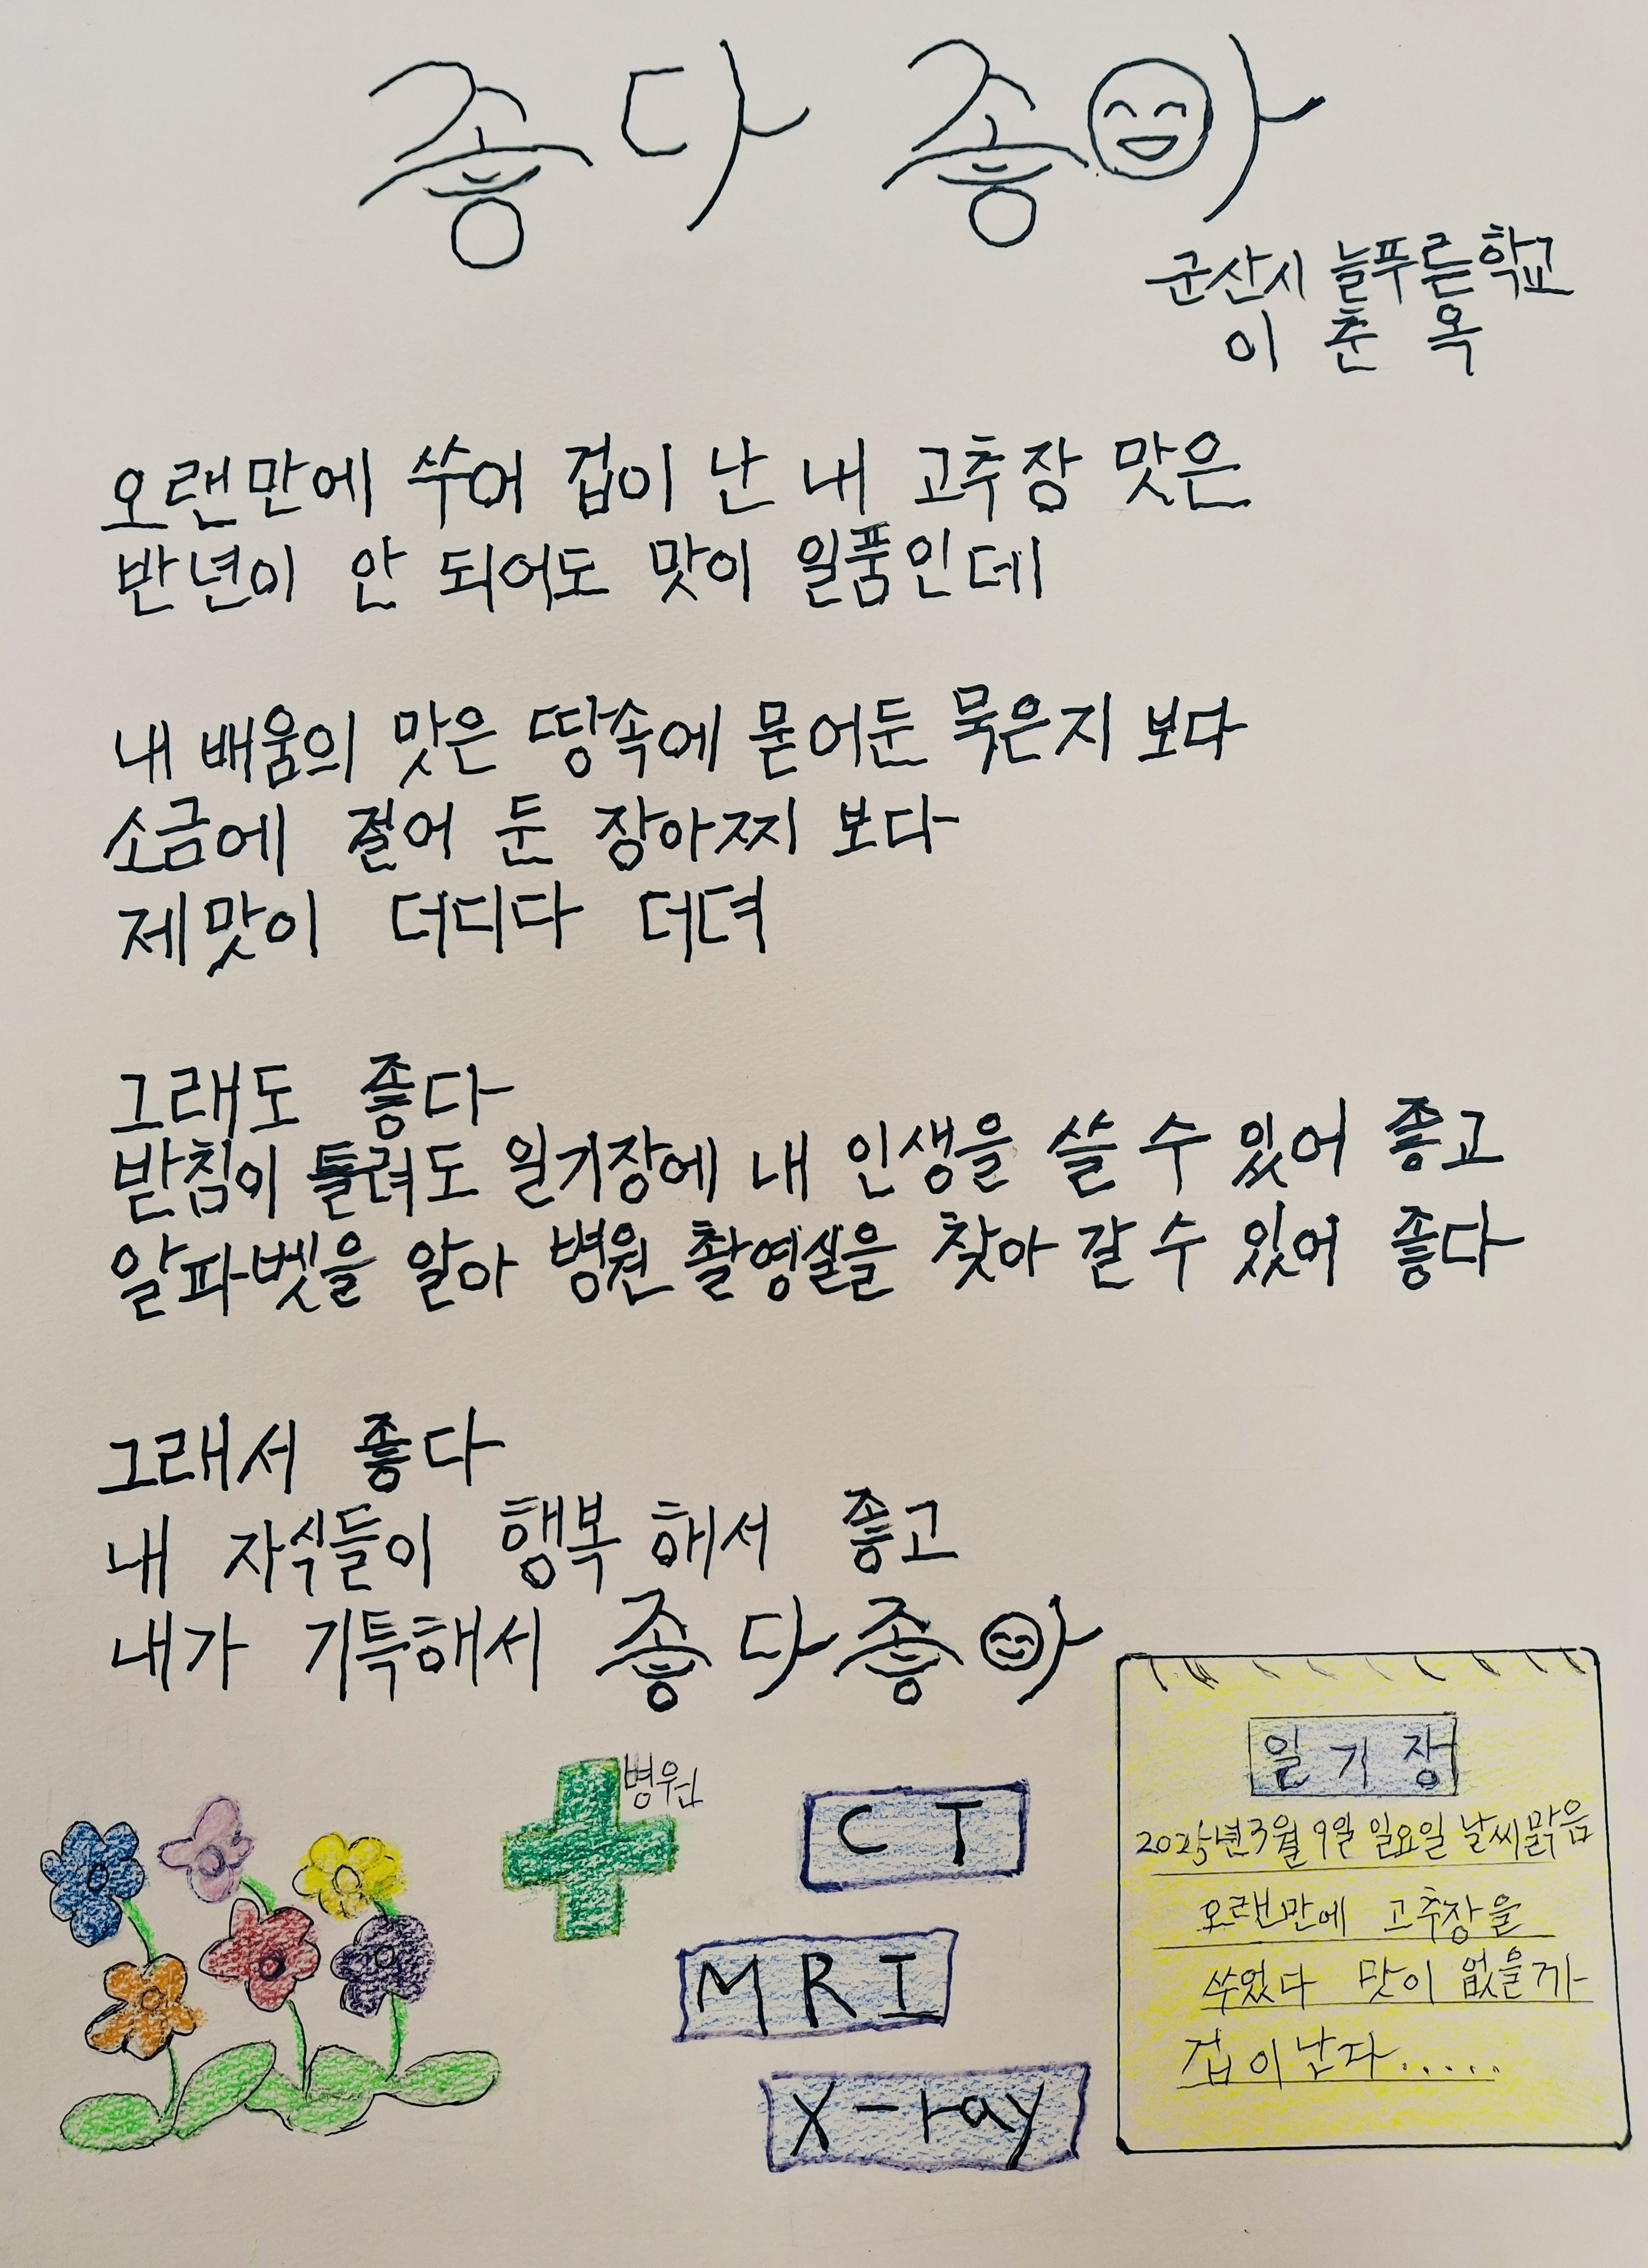 좋다 좋아
군산시 늘푸른학교
이춘옥
오랜만에 쑤어 겁이 난 내 고추장 맛은
반년이 안 되어도 맛이 일품인데
내 배움의 맛은 땅속에 묻어둔 묵은지 보다
소금에 절어 둔 장아찌 보다
제맛이 더디다 더뎌
그래도 좋다
받침이 틀려도 일기장에 내 인생을 쓸 수 있어 좋고
알파벳을 알아 병원 촬영실을 찾아 갈 수 있어 좋다
그래서 좋다
내 자식들이 행복 해서 좋고
내가 기특해서 좋다 좋아
병원
CT
MRI
X-ray
일기장
2025년 3월 9일 일요일 날씨맑음
오랜만에 고추장을
쑤었다 맛이 없을까
겁이난다.....